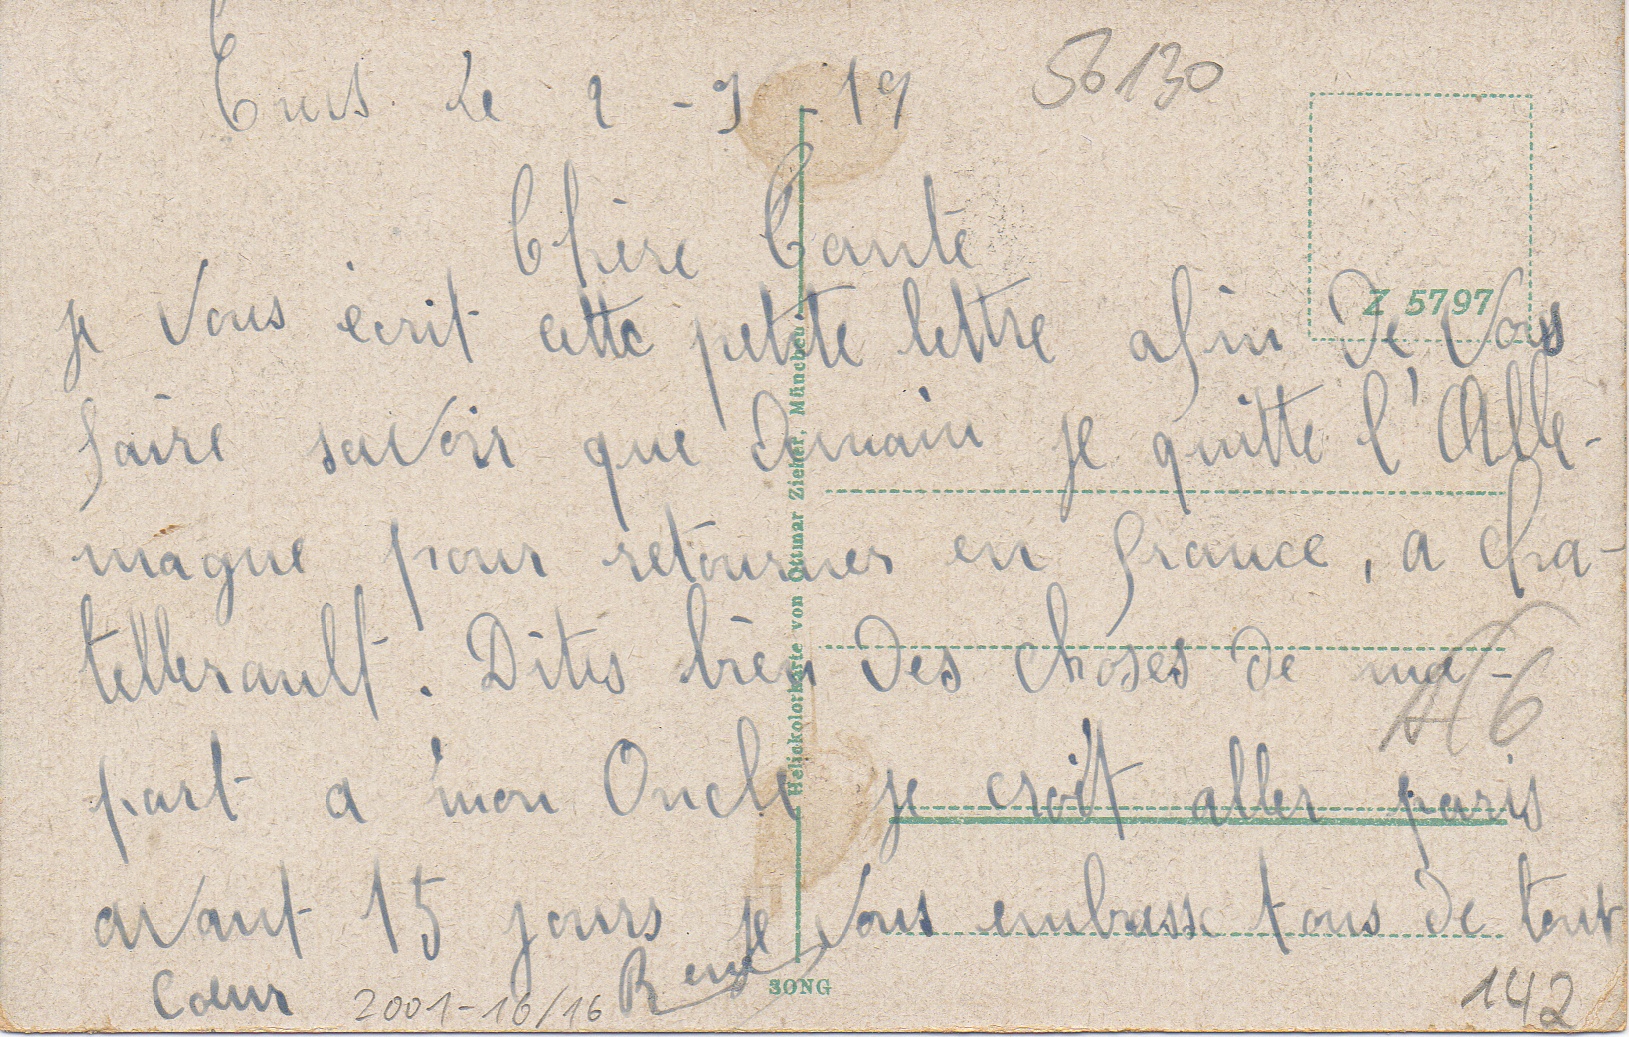 Ems le 9 - 9 - 19
56130
Chère Tante
Z 5797
je vous écrit cette petite lettre afin de vous
faire savoir que demain je quitte l'Alle-
magne pour retourner en france, a cha-
tellerault. Dites bien des choses de ma
A6
part a mon Oncle je croit aller paris
avant 15 jours je vous embrasse tous de tout
coeur 2001-16/16 René
142
Heliokolorkarte von Ottmar Zieher, München
SONG